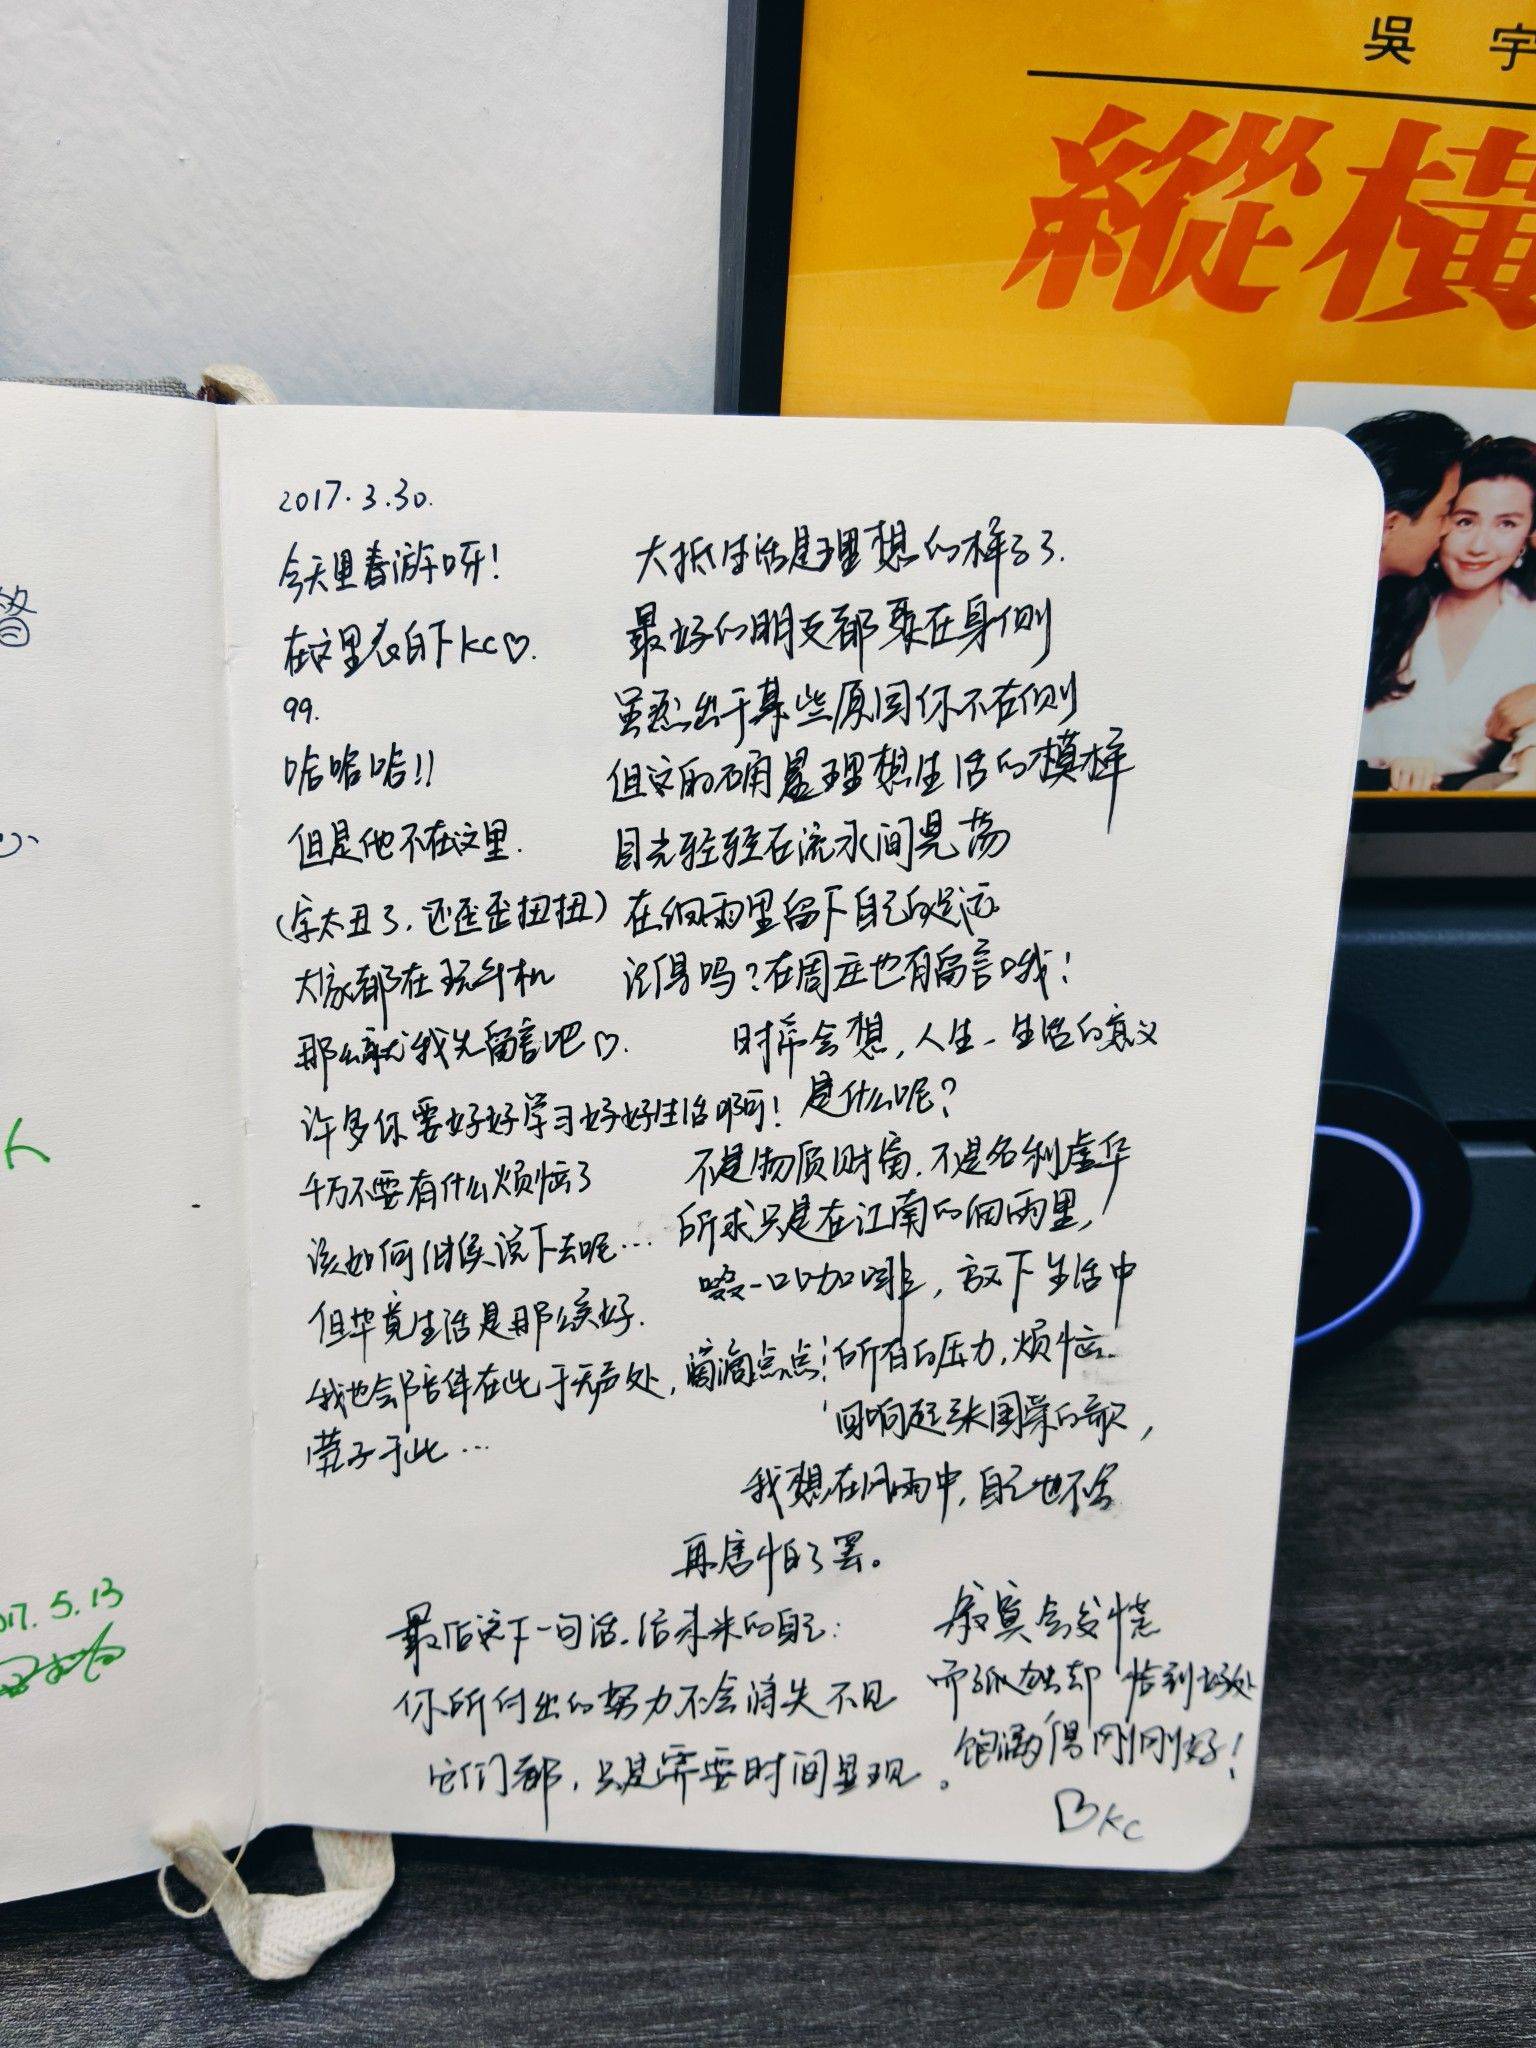 吳 宇
縱橫
2017.3.30.
今天里春游呀!
在这里表白下kc♡.
99.
哈哈哈!!
但是他不在这里.
(字太丑了,还歪歪扭扭)
大家都在玩手机
那么就我先留言吧♡.
许多你要好好学习好好生活啊!
千万不要有什么烦恼了
该如何继续说下去呢…
但毕竟生活是那么美好.
我也会陪伴在此于无声处,滴滴点点!
落子于此…
大抵生活是理想的样子了.
最好的朋友都聚在身侧
虽然出于某些原因你不在侧
但这的确是理想生活的模样
目光轻轻在流水间晃荡
在细雨里留下自己的足迹
记得吗?在周庄也有留言哦!
时常会想,人生、生活的意义
是什么呢?
不是物质财富,不是名利虚华
所求只是在江南的细雨里,
啜一口咖啡,放下生活中
所有的压力,烦恼.
回响起张国荣的歌,
我想在风雨中,自己也不会
再害怕了罢。
最后写下一句话,给未来的自己:
你所付出的努力不会消失不见
它们都,只是需要时间显现。
寂寞会发慌
而孤独却 恰到好处
饱满得刚刚好!
kc
017.5.13